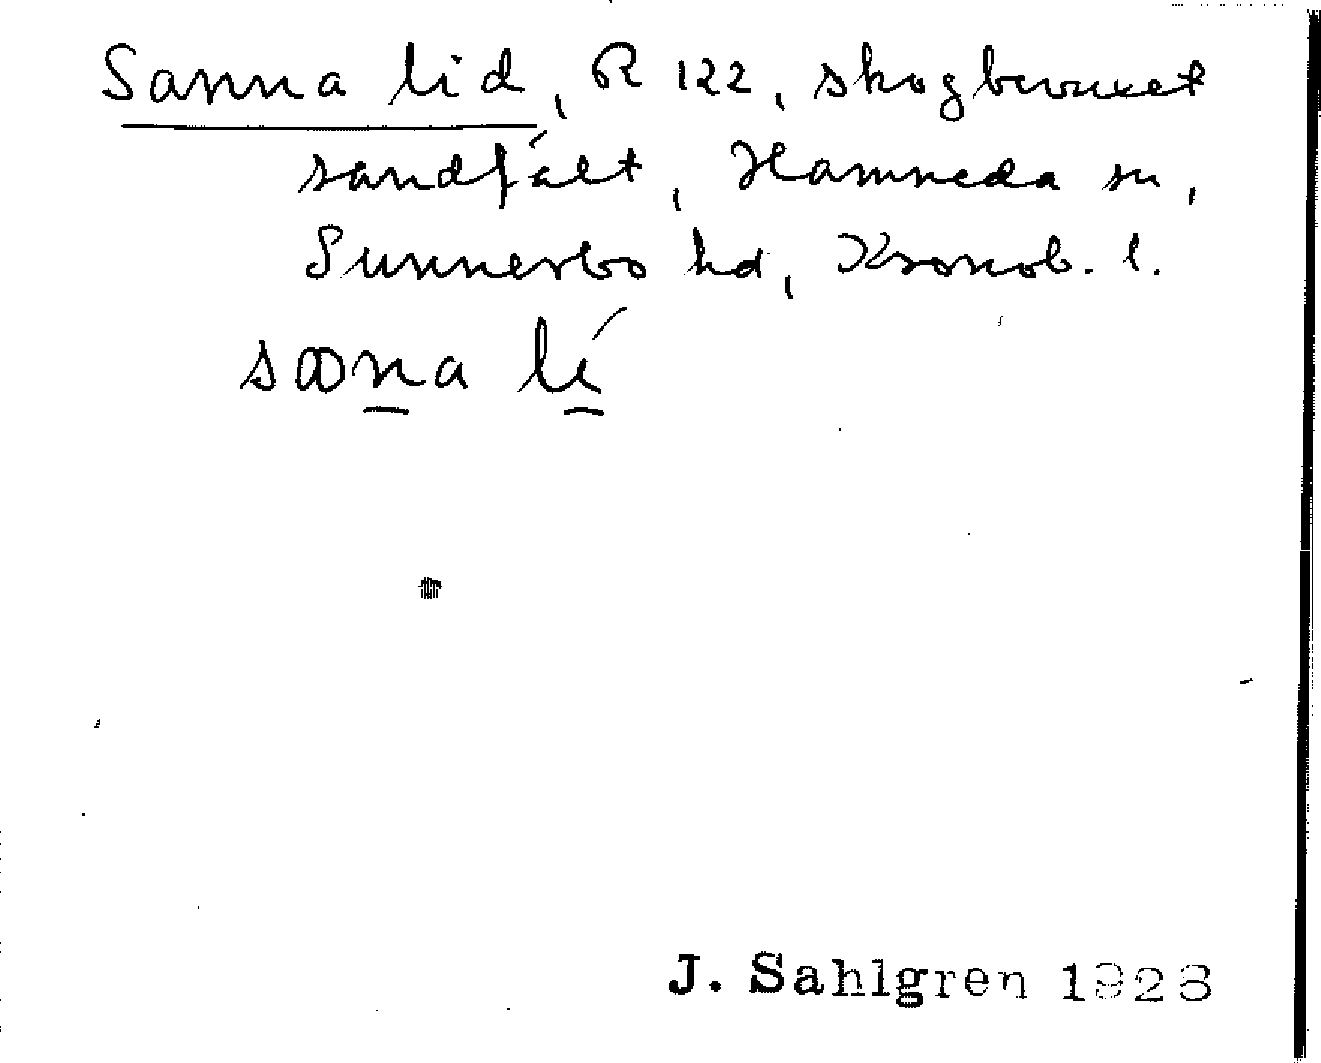 Sanna lid, R 122, skogbevuxet
sandfält, Hamneda sn,
Sunnerbo hd, Kronob. l.
J. Sahlgren 1928